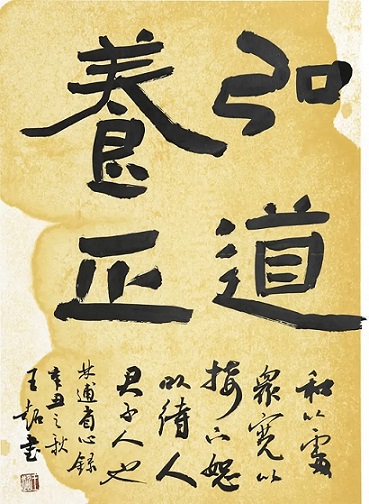 弘道
養正
和以處
眾寬以
接下恕
以待人
君子人也
林逋省心錄
辛丑之秋
王書